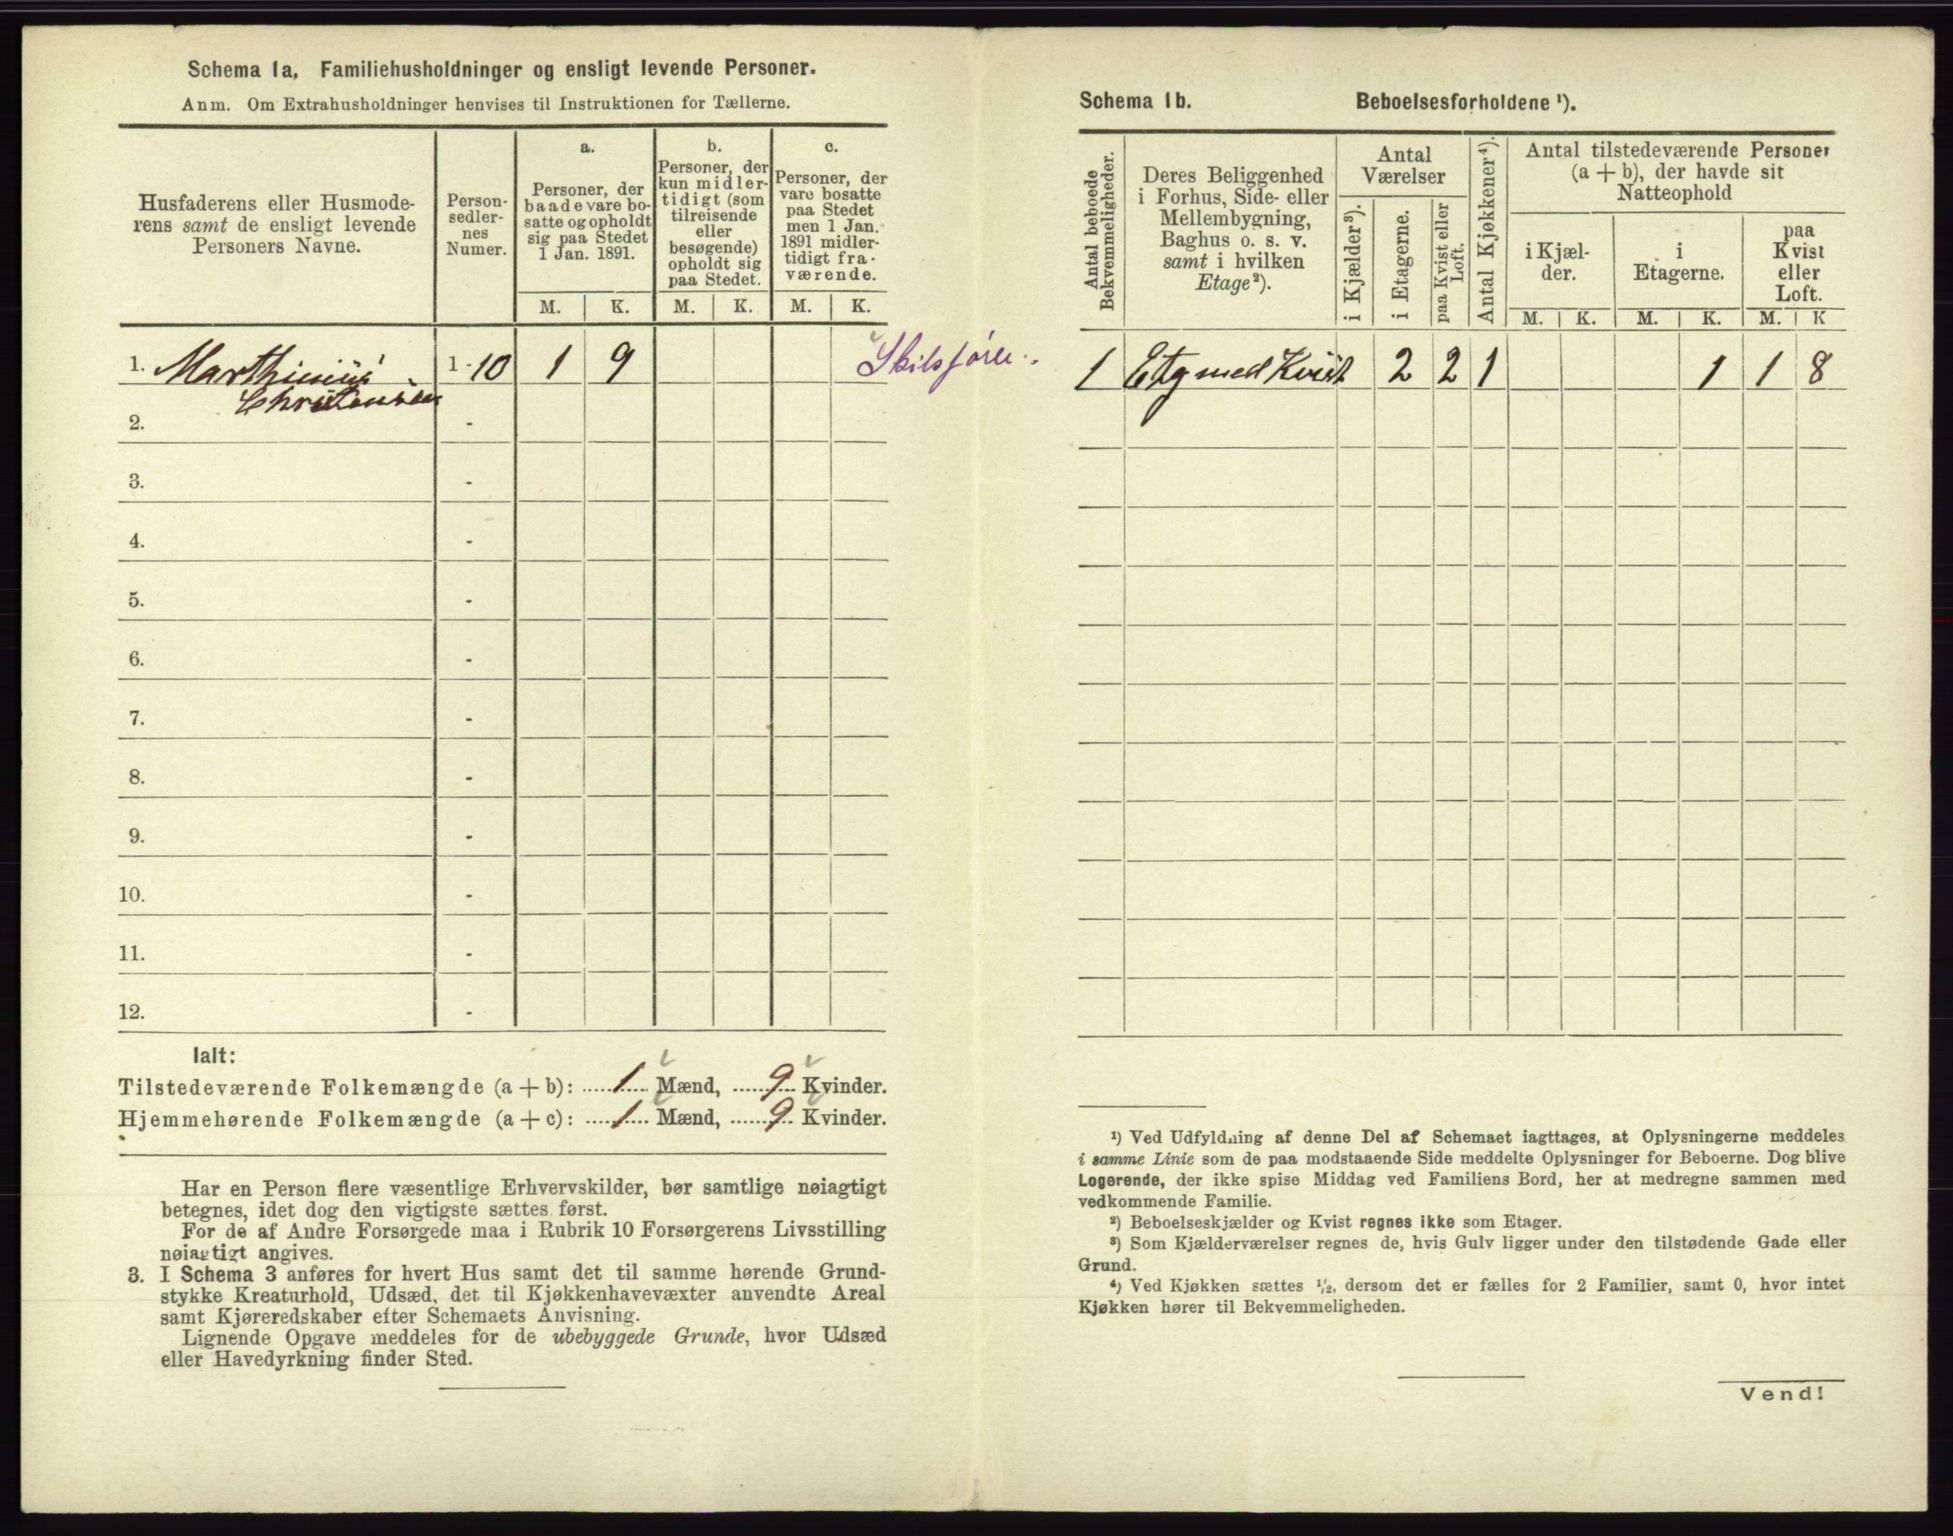 Schema 1a, Familiehusholdninger og ensligt levende Personer.
Anm. Om Extrahusholdninger henvises til Instruktionen for Tællerne.
Husfaderens eller Husmode-
rens samt de ensligt levende
Personers Navne.
Person-
sedler-
nes
Numer.
a.
Personer, der
baade vare bo-
satte og opholdt
sig paa Stedet
1 Jan. 1891.
b.
Personer, der
kun midler-
tidigt (som
tilreisende
eller
besøgende)
opholdt sig
paa Stedet.
c.
Personer, der
vare bosatte
paa Stedet
men 1 Jan.
1891 midler-
tidigt fra-
værende.
M. K. M. K. M. K.
1. Marthinius 1-10 1 9
Christensen
2. -
3. -
4. -
5. -
6. -
7. -
8. -
9. -
10. -
11. -
12. -
Ialt:
Tilstedeværende Folkemængde (a + b): 1 Mænd, 9 Kvinder.
Hjemmehørende Folkemængde (a + c): 1 Mænd, 9 Kvinder.
Har en Person flere væsentlige Erhvervskilder, bør samtlige nøiagtigt
betegnes, idet dog den vigtigste sættes først.
For de af Andre Forsørgede maa i Rubrik 10 Forsørgerens Livsstilling
nøiagtigt angives.
3. I Schema 3 anføres for hvert Hus samt det til samme hørende Grund-
stykke Kreaturhold, Udsæd, det til Kjøkkenhavevæxter anvendte Areal
samt Kjøreredskaber efter Schemaets Anvisning.
Lignende Opgave meddeles for de ubebyggede Grunde, hvor Udsæd
eller Havedyrkning finder Sted.
Schema 1b. Beboelsesforholdene ¹).
Antal beboede
Bekvemmeligheder.
Deres Beliggenhed
i Forhus, Side- eller
Mellembygning,
Baghus o. s. v.
samt i hvilken
Etage²).
Antal
Værelser
i Kjælder³).
i Etagerne.
paa Kvist eller
Loft.
Antal Kjøkkener⁴).
Antal tilstedeværende Personer
(a + b), der havde sit
Natteophold
i Kjæl-
der.
i
Etagerne.
paa
Kvist
eller
Loft.
M. K. M. K. M. K
1 Etg med Kvist 2 2 1 1 1 8
¹) Ved Udfyldning af denne Del af Schemaet iagttages, at Oplysningerne meddeles
i samme Linie som de paa modstaaende Side meddelte Oplysninger for Beboerne. Dog blive
Logerende, der ikke spise Middag ved Familiens Bord, her at medregne sammen med
vedkommende Familie.
²) Beboelseskjælder og Kvist regnes ikke som Etager.
³) Som Kjælderværelser regnes de, hvis Gulv ligger under den tilstødende Gade eller
Grund.
⁴) Ved Kjøkken sættes ½, dersom det er fælles for 2 Familier, samt 0, hvor intet
Kjøkken hører til Bekvemmeligheden.
Vend!